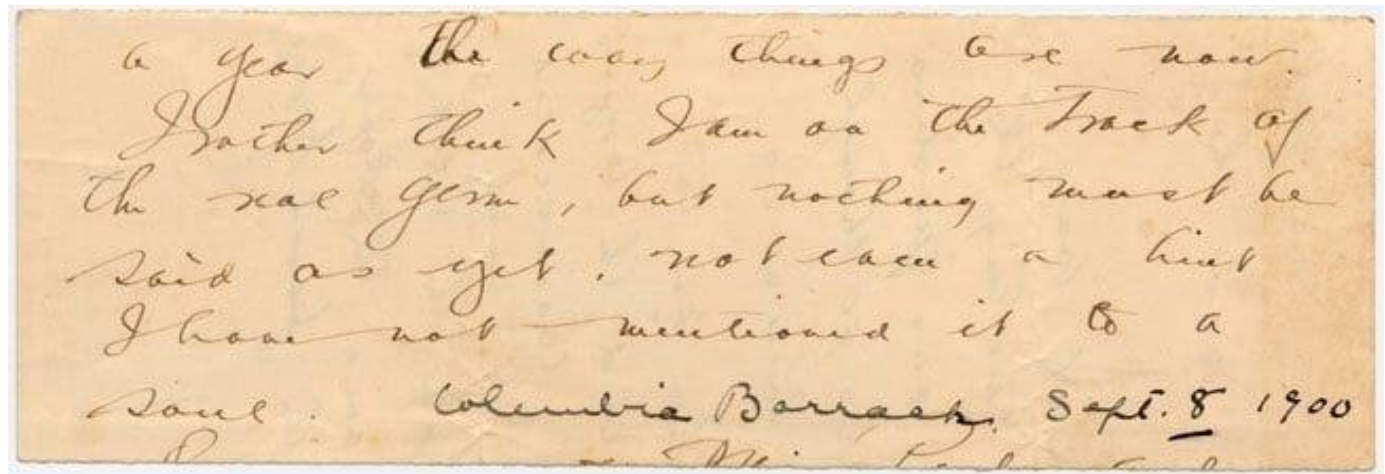 a year the way things are now.
I rather think I am on the track of
the real germ, but nothing must be
said as yet, not even a hint
I have not mentioned it to a
soul. Columbia Barracks. Sept. 8 1900